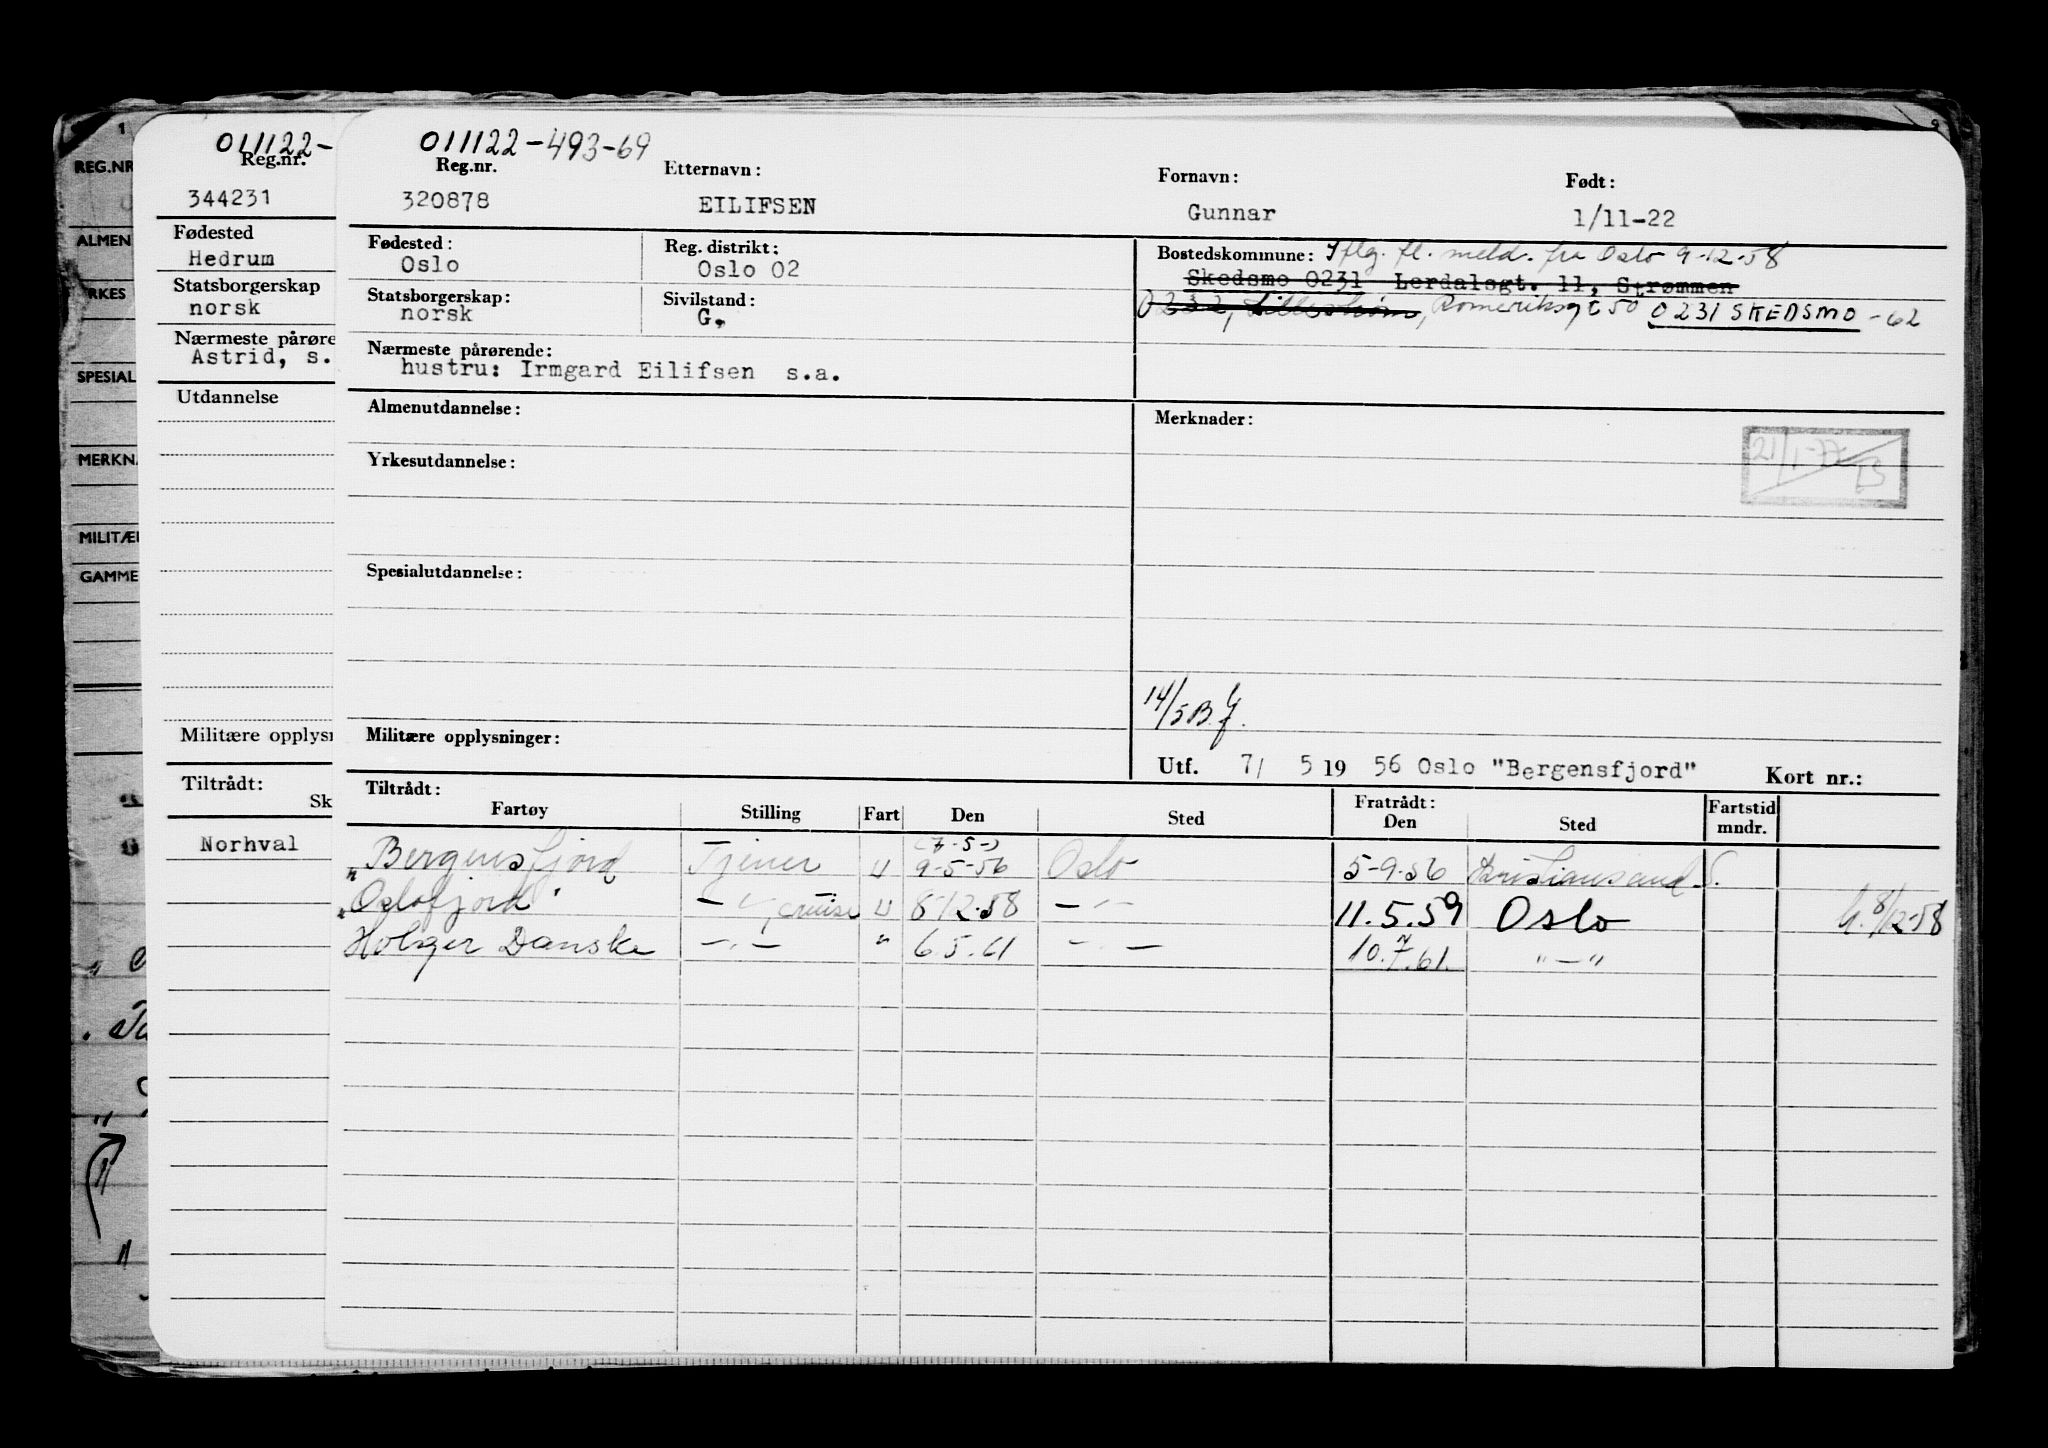 1
REG.NR
ALMEN
RKES
SPECIAL
MERKNA
MILITÆR
GAMME
011122-
Reg.nr.
344231
Fødested
Hedrum
Statsborgerskap
norsk
Nærmeste pårøre
Astrid, s.
Utdannelse
Militære opplysn
Tiltrådt:
Sk
Norhval
9
011122-493-69
Reg.nr. Etternavn: Fornavn: Født:
320878 EILIFSEN Gunnar 1/11-22
Fødested: Reg. distrikt: Bostedskommune: Iflg. fl. meld. fra Oslo 9-12-58
Oslo Oslo 02 Skedsmo 0231 Lerdalsgt. 11, Strømmen
Statsborgerskap: Sivilstand: 0232, Lillestrøm, Romeriksgt 50 0231 SKEDSMO -62
norsk G.
Nærmeste pårørende:
hustru: Irmgard Eilifsen s.a.
Almenutdannelse: Merknader:
21/1-77 TS
Yrkesutdannelse:
Spesialutdannelse:
14/5 B.G.
Militære opplysninger:
Utf. 7/ 5 19 56 Oslo "Bergensfjord" Kort nr.:
Tiltrådt: Fratrådt: Fartstid
Fartøy Stilling Fart Den Sted Den Sted mndr.
(7-5-)
"Bergensfjord Tjener U 9-5-56 Oslo 5-9-56 Kristiansand S.
"Oslofjord" -"- cruise U 8-12-58 -"- 11.5.59 Oslo 8/12-58
Holger Danske -"- " 6.5.61 -"- 10.7.61. "-"